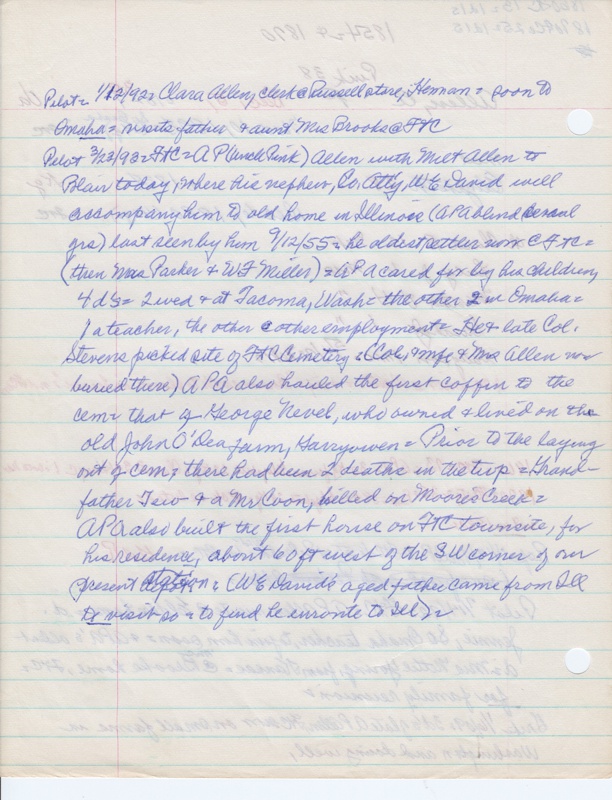 Pilot = 1/12/92 = Clara Allen, clerk @ Russell store, Herman = soon to
Omaha = visits father & aunt Mrs Brooks @ FtC
Pilot 3/23/93 = FtC = A P (Uncle Pink) Allen with Milt Allen to
Blair today, where his nephew, Co. Att'y, W E David will
accompany him to old home in Illinois (A P A blind several
yrs) last seen by him 9/12/55 = he oldest settler now @ FtC =
(then Mrs Parker & W F Miller) = A P A cared for by his children,
4 d's = 2 wed & at Tacoma, Wash = the other 2 in Omaha =
1 a teacher, the other @ other employment = He & late Col.
Stevens picked site of FtC Cemetry = (Col. & wife & Mrs Allen now
buried there) A P A also hauled the first coffin to the
cem = that of George Nevel, who owned & lived on the
old John O'Dea farm, Garryowen = Prior to the laying
out of cem, there had been 2 deaths in the twp = Grand-
father & a Mr Coon, killed on Moore's Creek =
A P A also built the first house on FtC townsite, for
his residence, about 60 ft west of the SW corner of our
present station = (W E David's aged father came from Ill
to visit so = to find he enroute to Ill) =